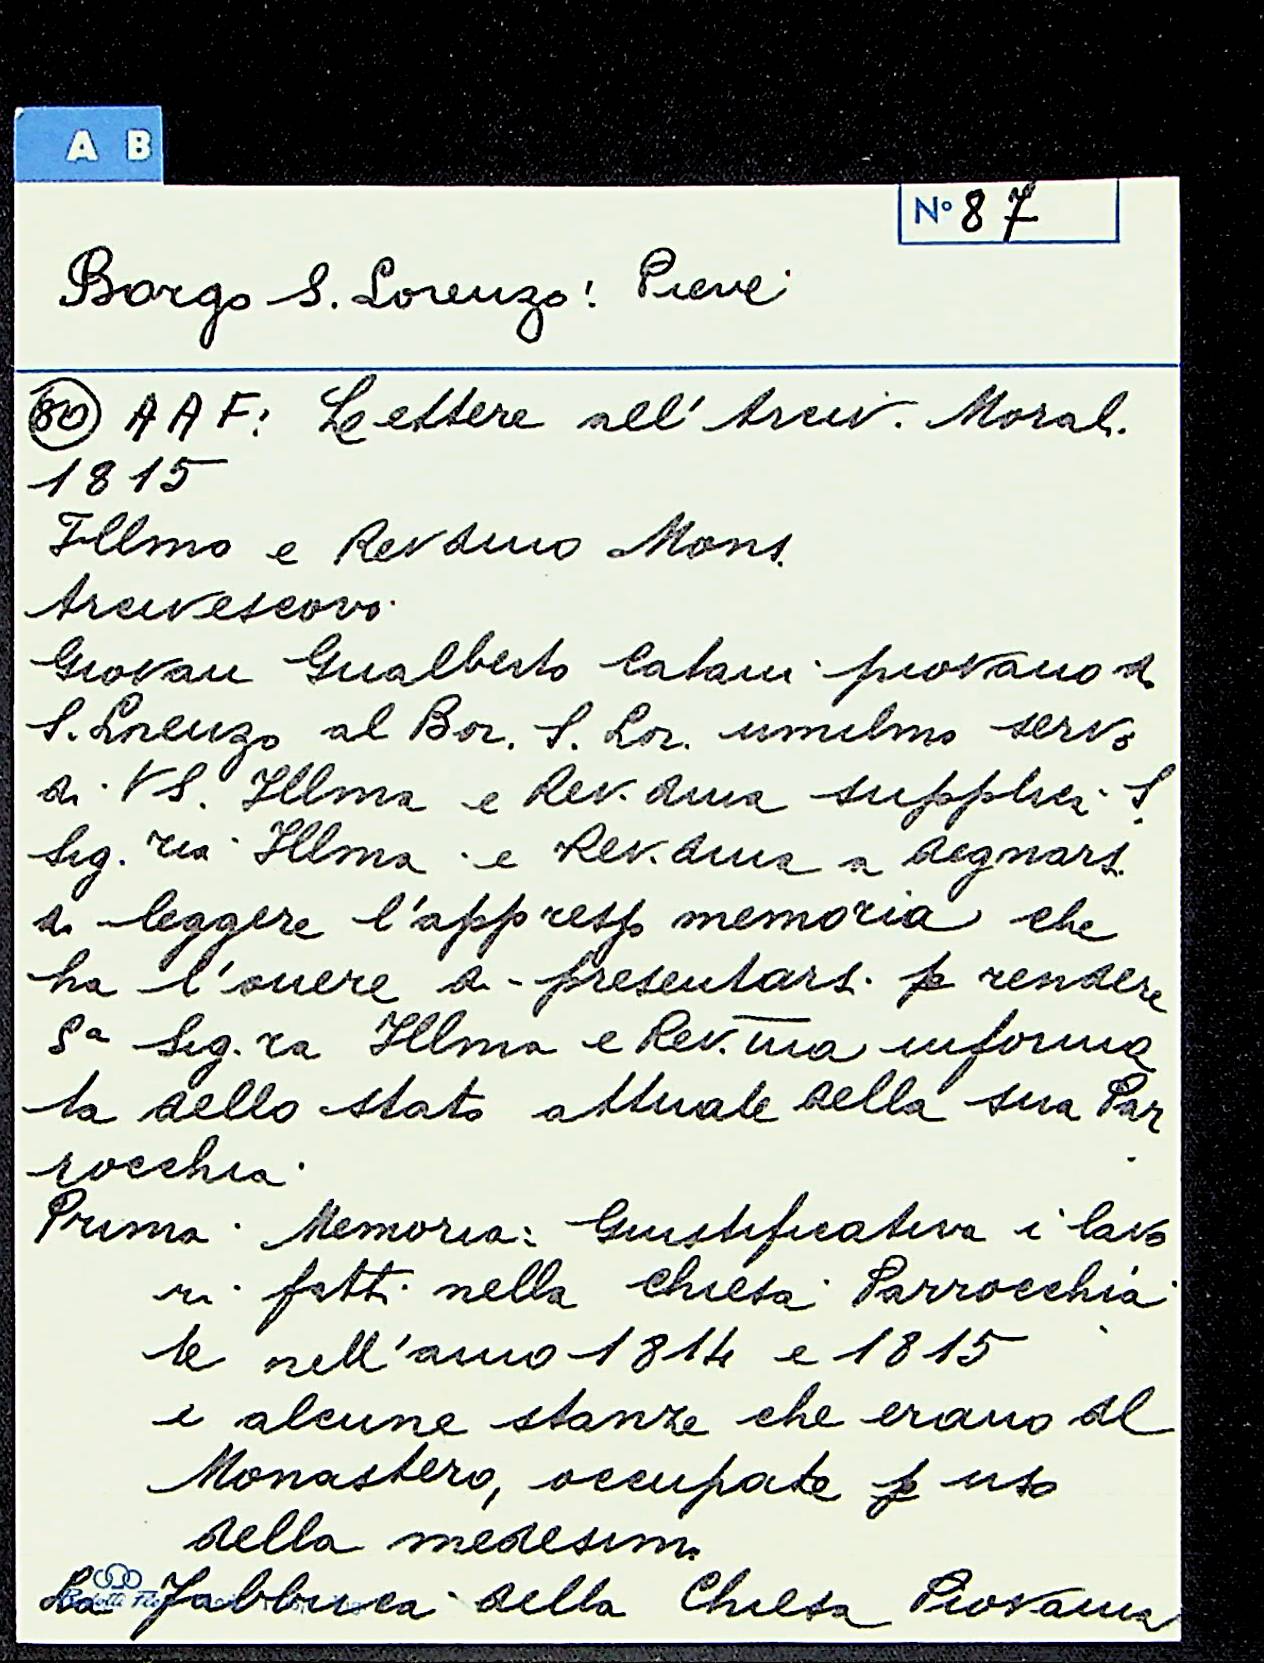 A B
N° 87
Borgo S. Lorenzo: Pieve
80 AAF: Lettere all'Arciv. Moral.
1815
Illmo e Revdmo Mons.
Arcivescovo
Giovan Gualberto Catani piovano di
S. Lorenzo al Bor. S. Lor. umilmo servo
di VS. Illma e Rev.dma supplica S.
Sig.ria Illma e Rev.dma a degnarsi
di leggere l'appresso memoria che
ha l'onere di presentarsi p rendere
Sª Sig.ra Illma e Rev.ma informa
ta dello stato attuale della sua Par
rocchia
Prima Memoria: Giustificativa i lavo
ri fatti nella Chiesa Parrocchia
le nell'anno 1814 e 1815
e alcune stanze che erano del
Monastero, occupate p uso
della medesim.
La Fabbrica della Chiesa Piovana